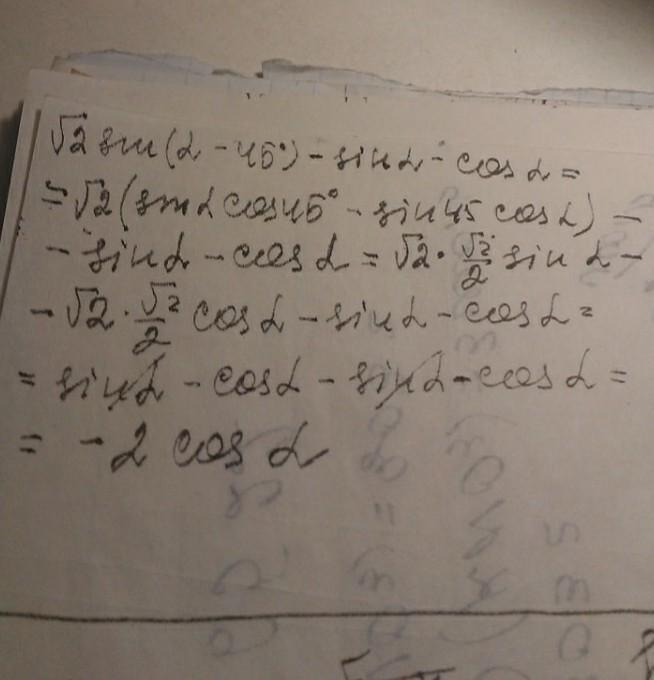 √2 sin(α - 45°) - sin α - cos α =
= √2(sin α cos 45° - sin 45 cos α) -
- sin α - cos α = √2 · √2/2 sin α -
- √2 · √2/2 cos α - sin α - cos α =
= sin α - cos α - sin α - cos α =
= - 2 cos α